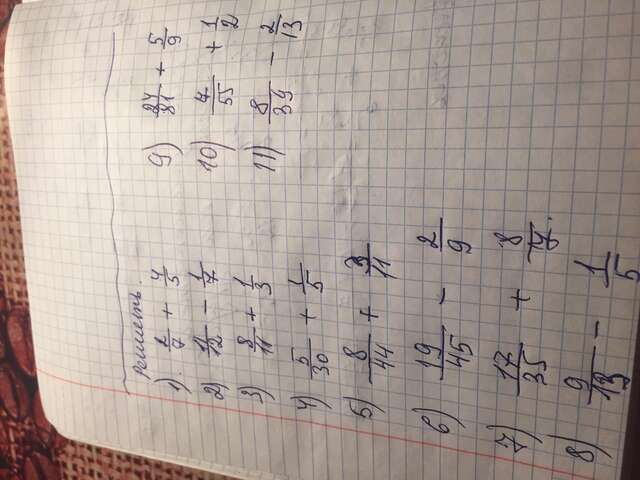 Решить.
1) 2/7 + 4/5
2) 11/12 - 1/7
3) 8/11 + 1/3
4) 5/30 + 1/5
5) 8/44 + 3/11
6) 19/45 - 2/9
7) 17/35 + 8/7
8) 9/13 - 1/5
9) 24/81 + 5/9
10) 7/55 + 1/2
11) 8/39 - 2/13